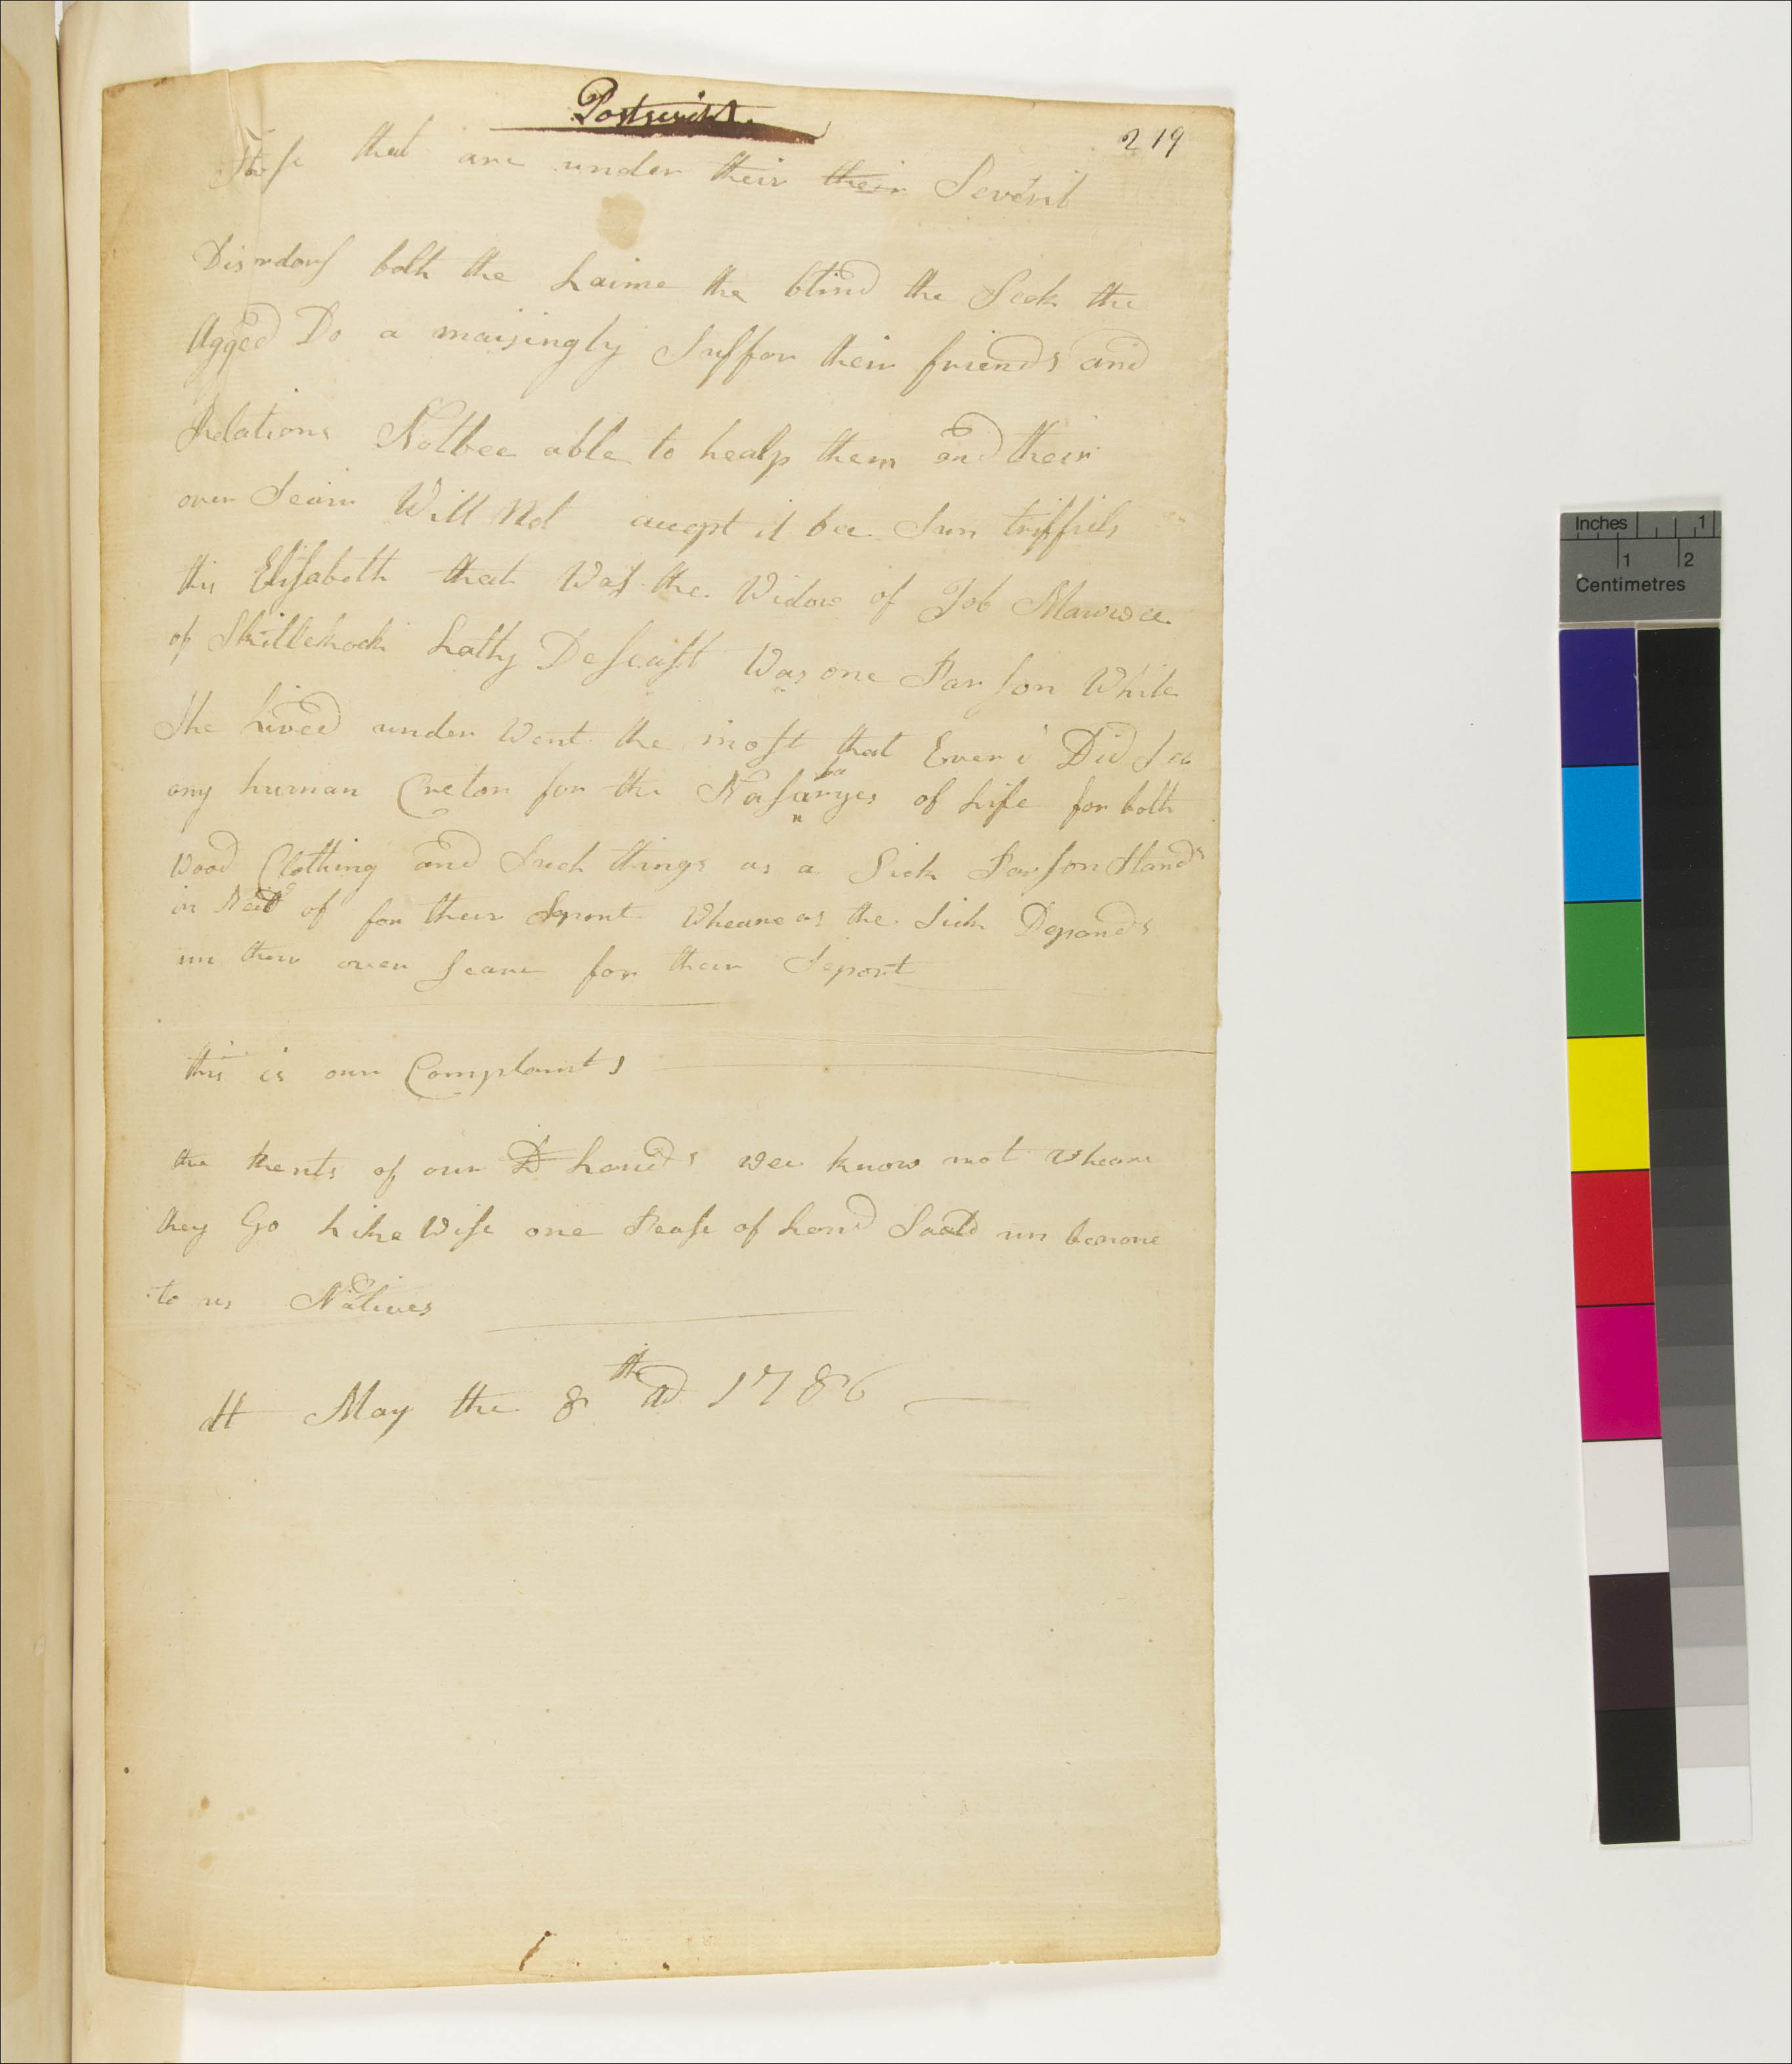 Postscript.
219
Those that are under their their Severil
Disordors both the Laime the blind the Seek the
Agged Do a maisingly Suffor their friends and
Relations Notbee able to healp them and their
over Seair Will Not accept it bee Sum triffiels
this Elisabeth that Was the Widow of Job Mawwee
of Skittekook Lathy Deseast Was one Parson While
She Lived under Went the most that Ever i Did See
any human Creton for the Nasaryes of Life for both
Wood Clothing and Such things as a Sick Parson Stands
in Need of for their Seport Wheare as the Sick Depends
un their over Seare for their Seport
this is our Complaints
the Rents of our Lands wee know not Wheare
they Go Like Wise one Pease of Land Saald un benone
to us Natives
At May the 8th AD 1786
Inches 1
1 2
Centimetres